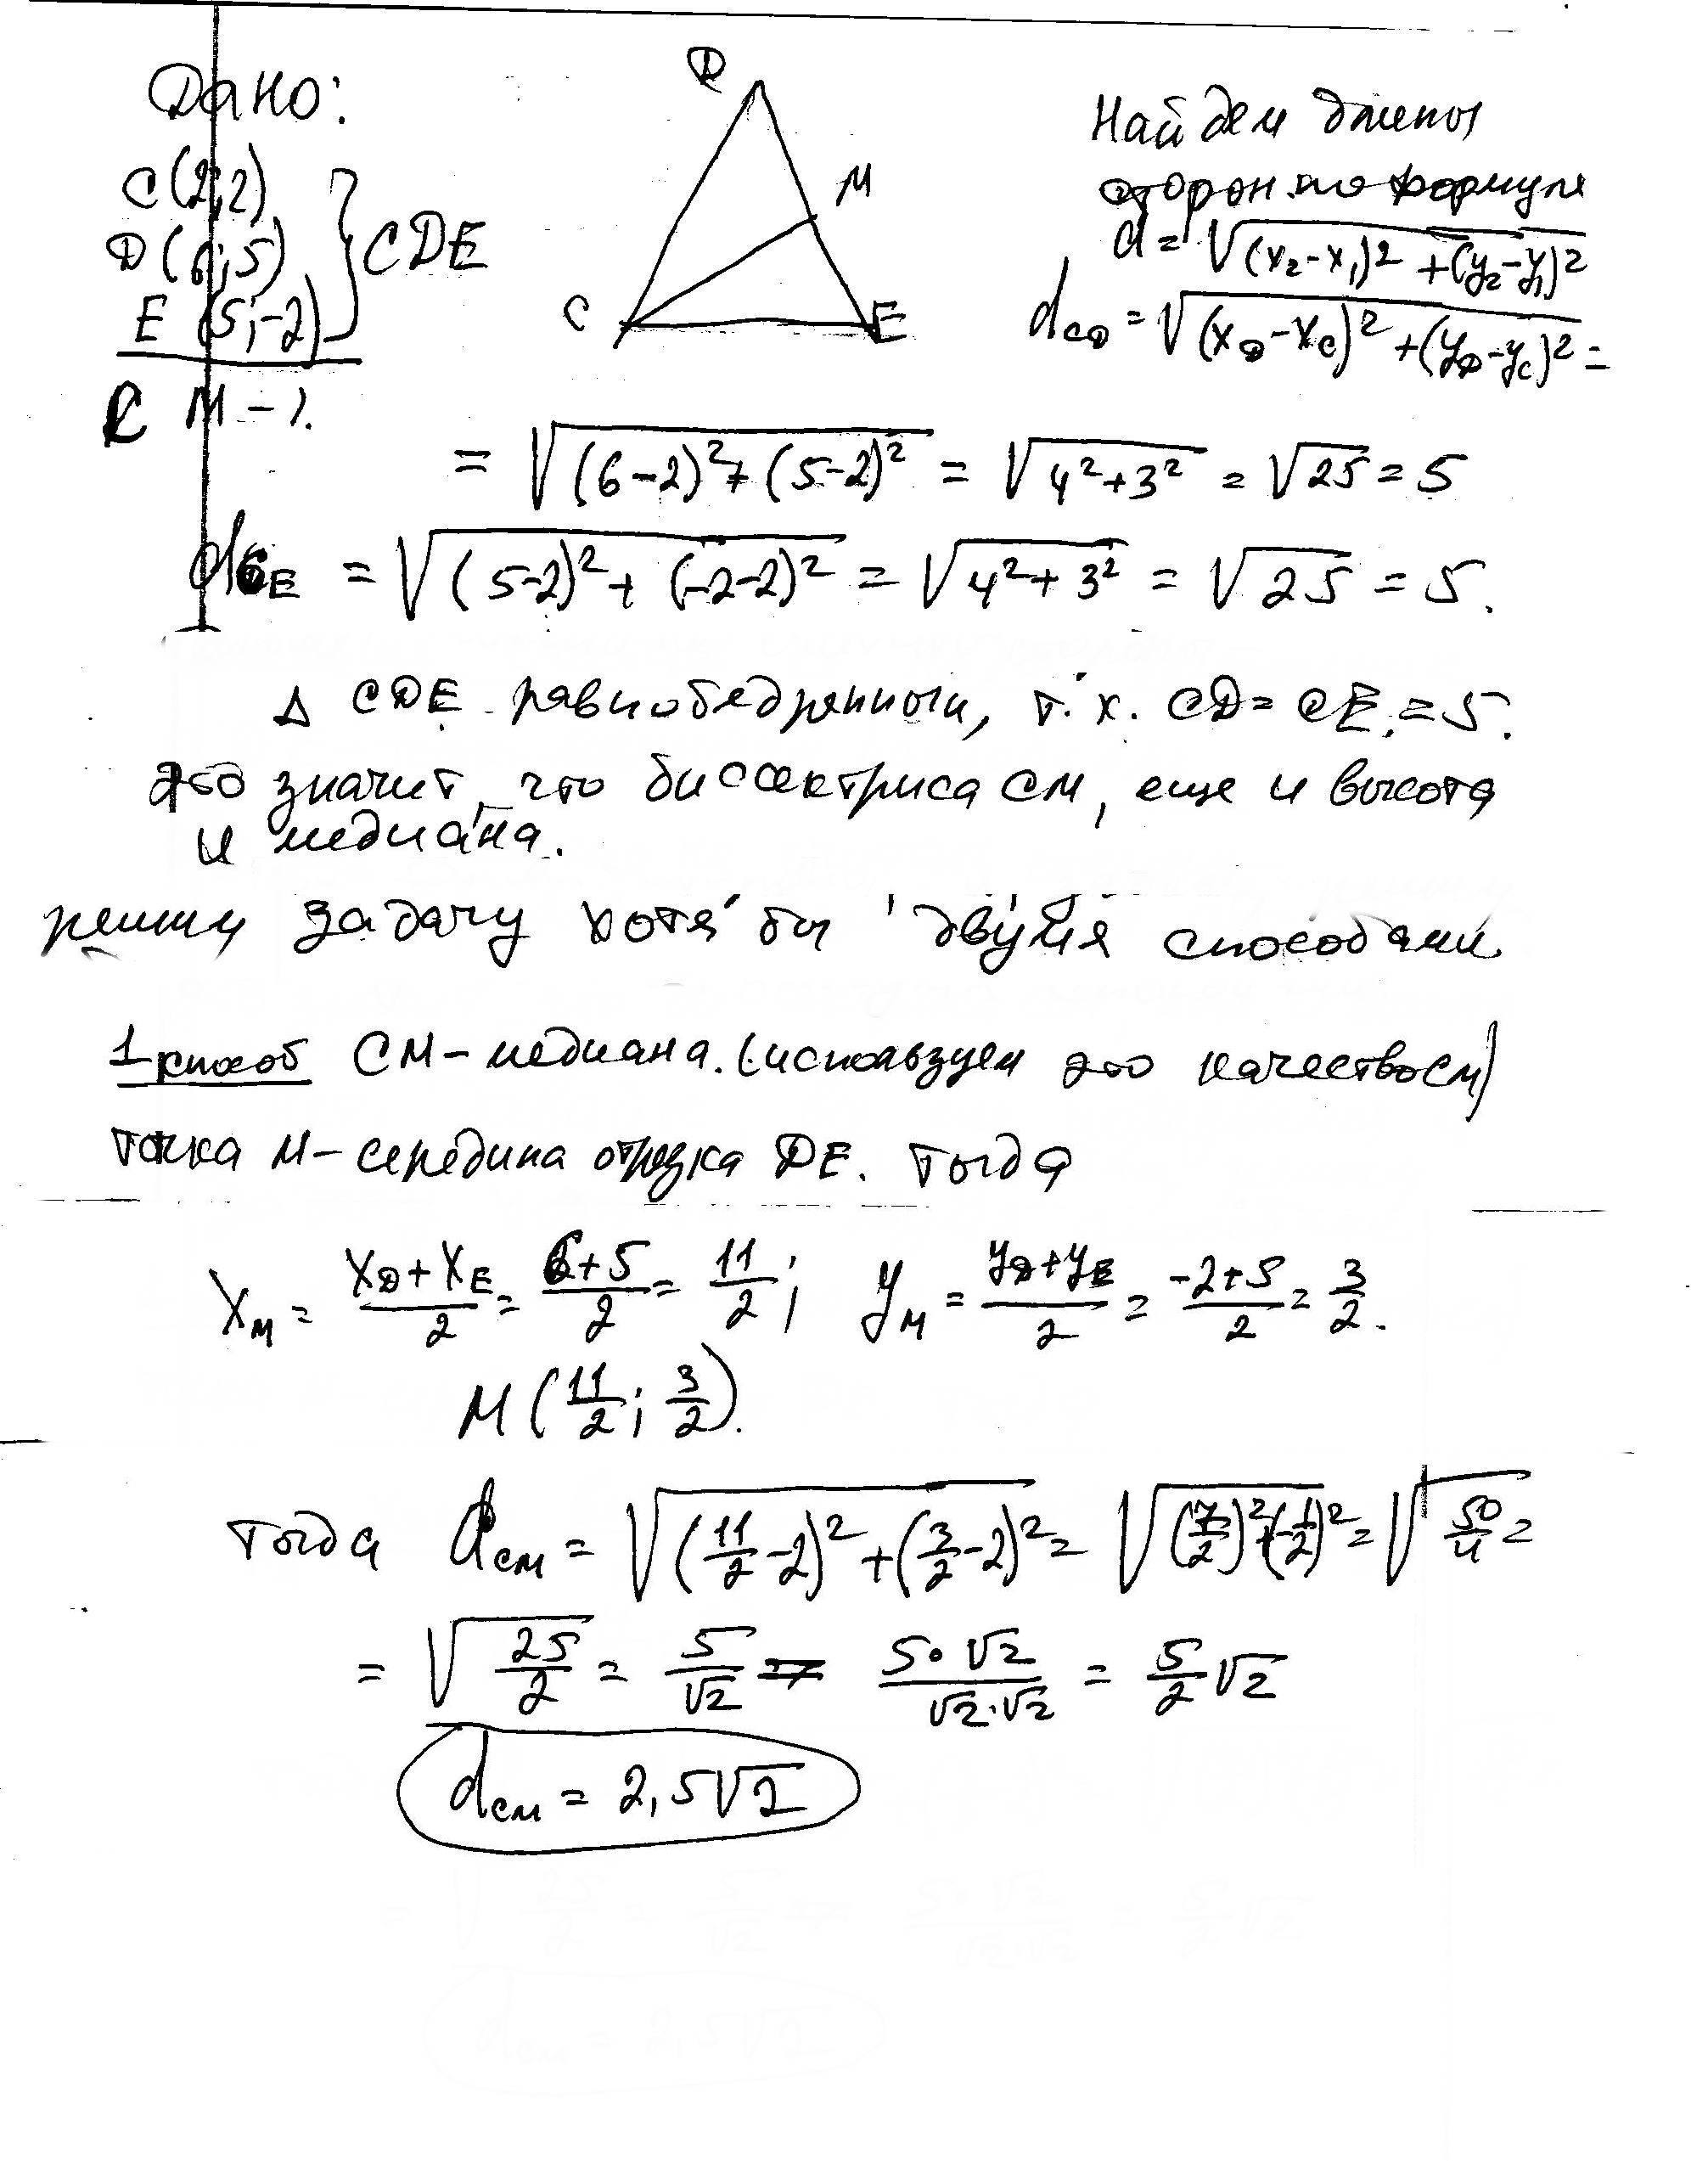 Дано:
C(2;2)
D(6;5)
E(5;-2)
} CDE
CM - ?
D
M
C
E
Найдем длины
сторон по формуле
d = √((x₂-x₁)² + (y₂-y₁)²)
d_CD = √((x_D-x_C)² + (y_D-y_C)²) =
= √((6-2)² + (5-2)²) = √(4²+3²) = √25 = 5
d_CE = √((5-2)² + (-2-2)²) = √(4²+3²) = √25 = 5.
Δ CDE равнобедренный, т.к. CD = CE = 5.
это значит, что биссектриса CM, еще и высота
и медиана.
решим задачу хотя бы двумя способами
1 способ CM - медиана. (используем это качество CM)
точка M - середина отрезка DE. Тогда
x_M = (x_D + x_E)/2 = (6+5)/2 = 11/2; y_M = (y_D + y_E)/2 = (-2+5)/2 = 3/2.
M (11/2; 3/2).
тогда d_CM = √((11/2-2)² + (3/2-2)²) = √((7/2)² + (-1/2)²) = √(50/4) =
= √(25/2) = 5/√2 = (5·√2)/(√2·√2) = 5/2 √2
d_CM = 2,5√2